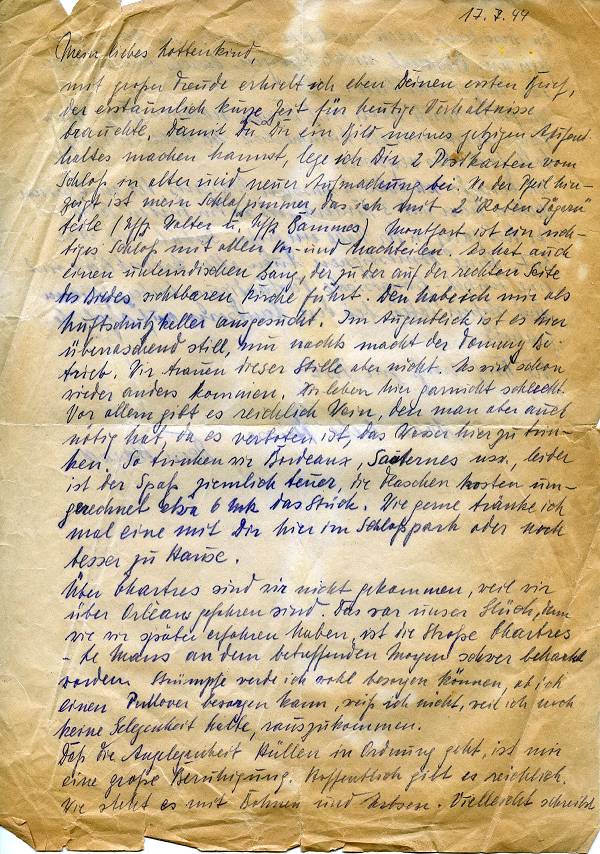 17.7.44
Mein liebes Lottenkind,
mit großer Freude erhielt ich eben Deinen ersten Brief,
der erstaunlich kurze Zeit für heutige Verhältnisse
brauchte. Damit Du Dir ein Bild meines jetzigen Aufent-
haltes machen kannst, lege ich Dir 2 Postkarten vom
Schloß in alter und neuer Aufmachung bei. Wo der Pfeil hin-
zeigt ist mein Schlafzimmer, das ich mit 2 "Roten Jägern"
teile (Uffz Walter u. Uffz Sammes) Montfort ist ein rich-
tiges Schloß mit allen Vor- und Nachteilen. Es hat auch
einen unterirdischen Gang, der zu der auf der rechten Seite
des Bildes sichtbaren Kirche führt. Den habe ich mir als
Luftschutzkeller ausgesucht. Im Augenblick ist es hier
überraschend still, nur nachts macht der Tommy Be-
trieb. Wir trauen dieser Stille aber nicht. Es wird schon
wieder anders kommen. Wir leben hier garnicht schlecht
Vor allem gibt es reichlich Wein, den man aber auch
nötig hat, da es verboten ist, das Wasser hier zu trin-
ken. So trinken wir Bordeaux, Sauternes usw., leider
ist der Spaß ziemlich teuer, die Flaschen kosten um-
gerechnet etwa 6 Mk das Stück. Wie gerne tränke ich
mal eine mit Dir hier im Schloßpark oder noch
besser zu Hause.
Über Chartres sind wir nicht gekommen, weil wir
über Orléans gefahren sind. Das war unser Glück, denn
wie wir später erfahren haben, ist die Straße Chartres
- Le Mans an dem betreffenden Morgen schwer beharkt
worden. Strümpfe werde ich wohl besorgen können, ob ich
einen Pullover besorgen kann, weiß ich nicht, weil ich noch
keine Gelegenheit hatte, rauszukommen.
Daß die Angelegenheit Hüllen in Ordnung geht, ist mir
eine große Beruhigung. Hoffentlich gibt es reichlich.
Wie steht es mit Bohnen und Erbsen. Vielleicht schreibst